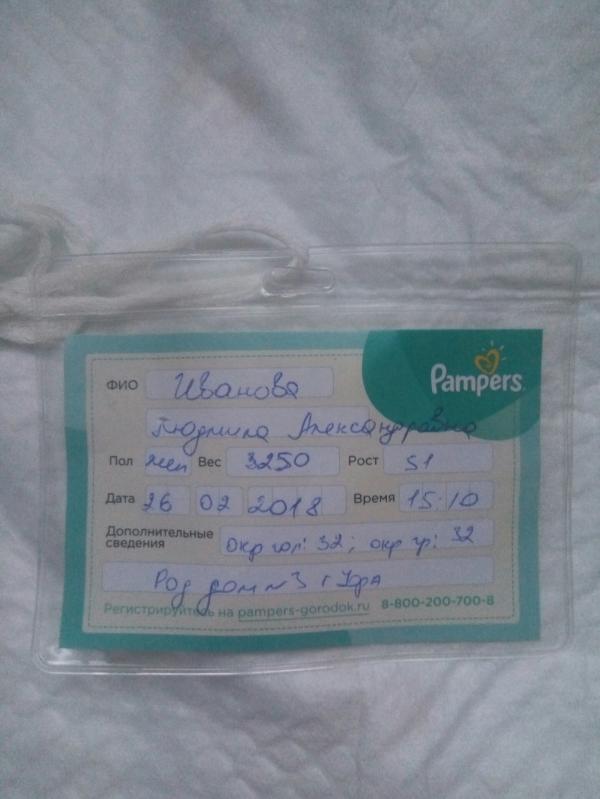 Pampers
ФИО Иванова
Людмила Александровна
Пол жен Вес 3250 Рост 51
Дата 26 02 2018 Время 15 10
Дополнительные сведения окр гол: 32; окр гр: 32
Род дом №3 г Уфа
Регистрируйтесь на pampers-gorodok.ru 8-800-200-700-8